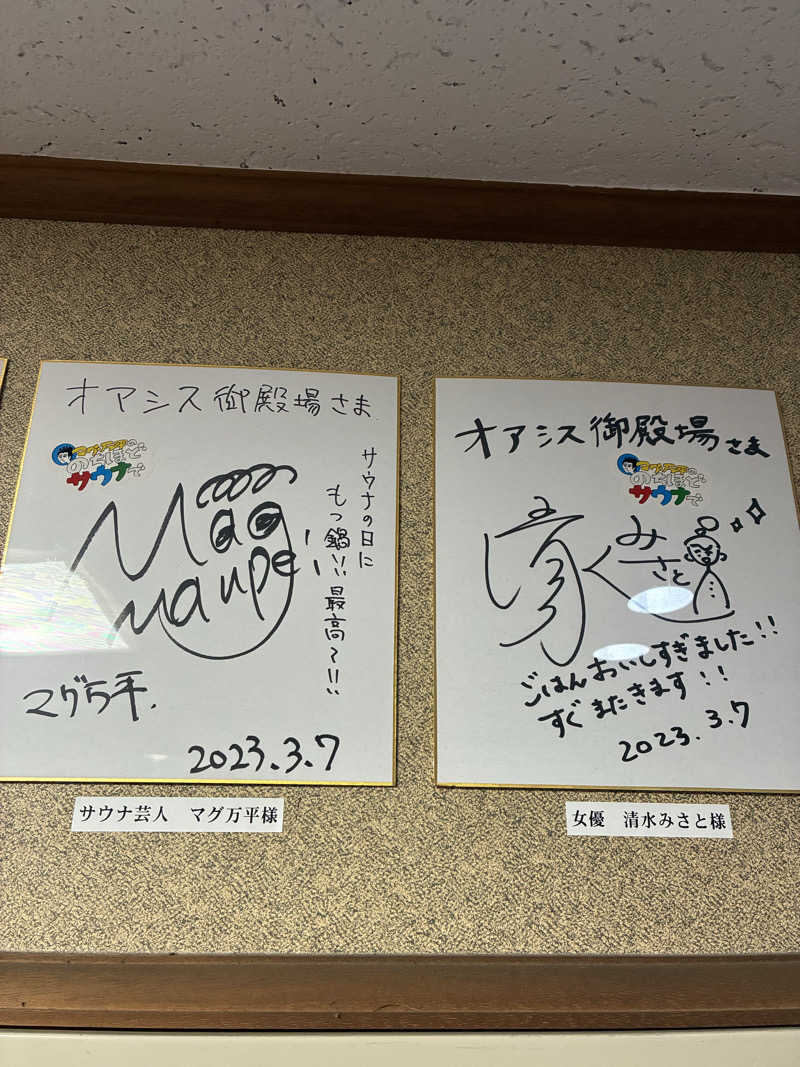 オアシス御殿場さま
マグ万平の
のちほど
サウナで
サウナの日に
もつ鍋!! 最高〜!!
Mag
Manpei
マグ万平.
2023.3.7
サウナ芸人 マグ万平様
オアシス御殿場さま
マグ万平の
のちほど
サウナで
みさと
ごはんおいしすぎました!!
すぐまたきます!!
2023.3.7
女優 清水みさと様